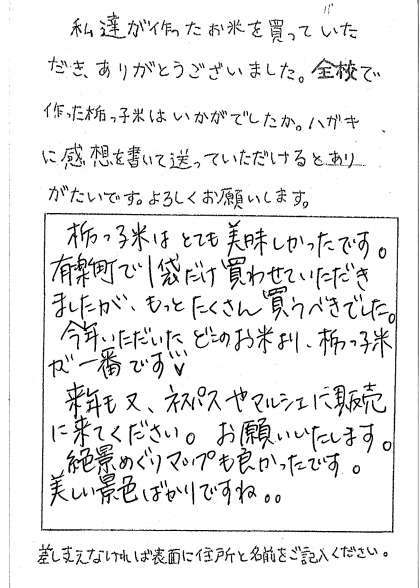 私達が作ったお米を買っていた
だき、ありがとうございました。全校で
作った栃っ子米はいかがでしたか。ハガキ
に感想を書いて送っていただけるとあり
がたいです。よろしくお願いします。
栃っ子米はとても美味しかったです。
有楽町で1袋だけ買わせていただき
ましたが、もっとたくさん買うべきでした。
今年いただいたどこのお米より、栃っ子米
が一番です♡
来年も又、ネスパスやマルシェに販売
に来てください。お願いいたします。
絶景めぐりマップも良かったです。
美しい景色ばかりですね。。
差し支えなければ表面に住所と名前をご記入ください。